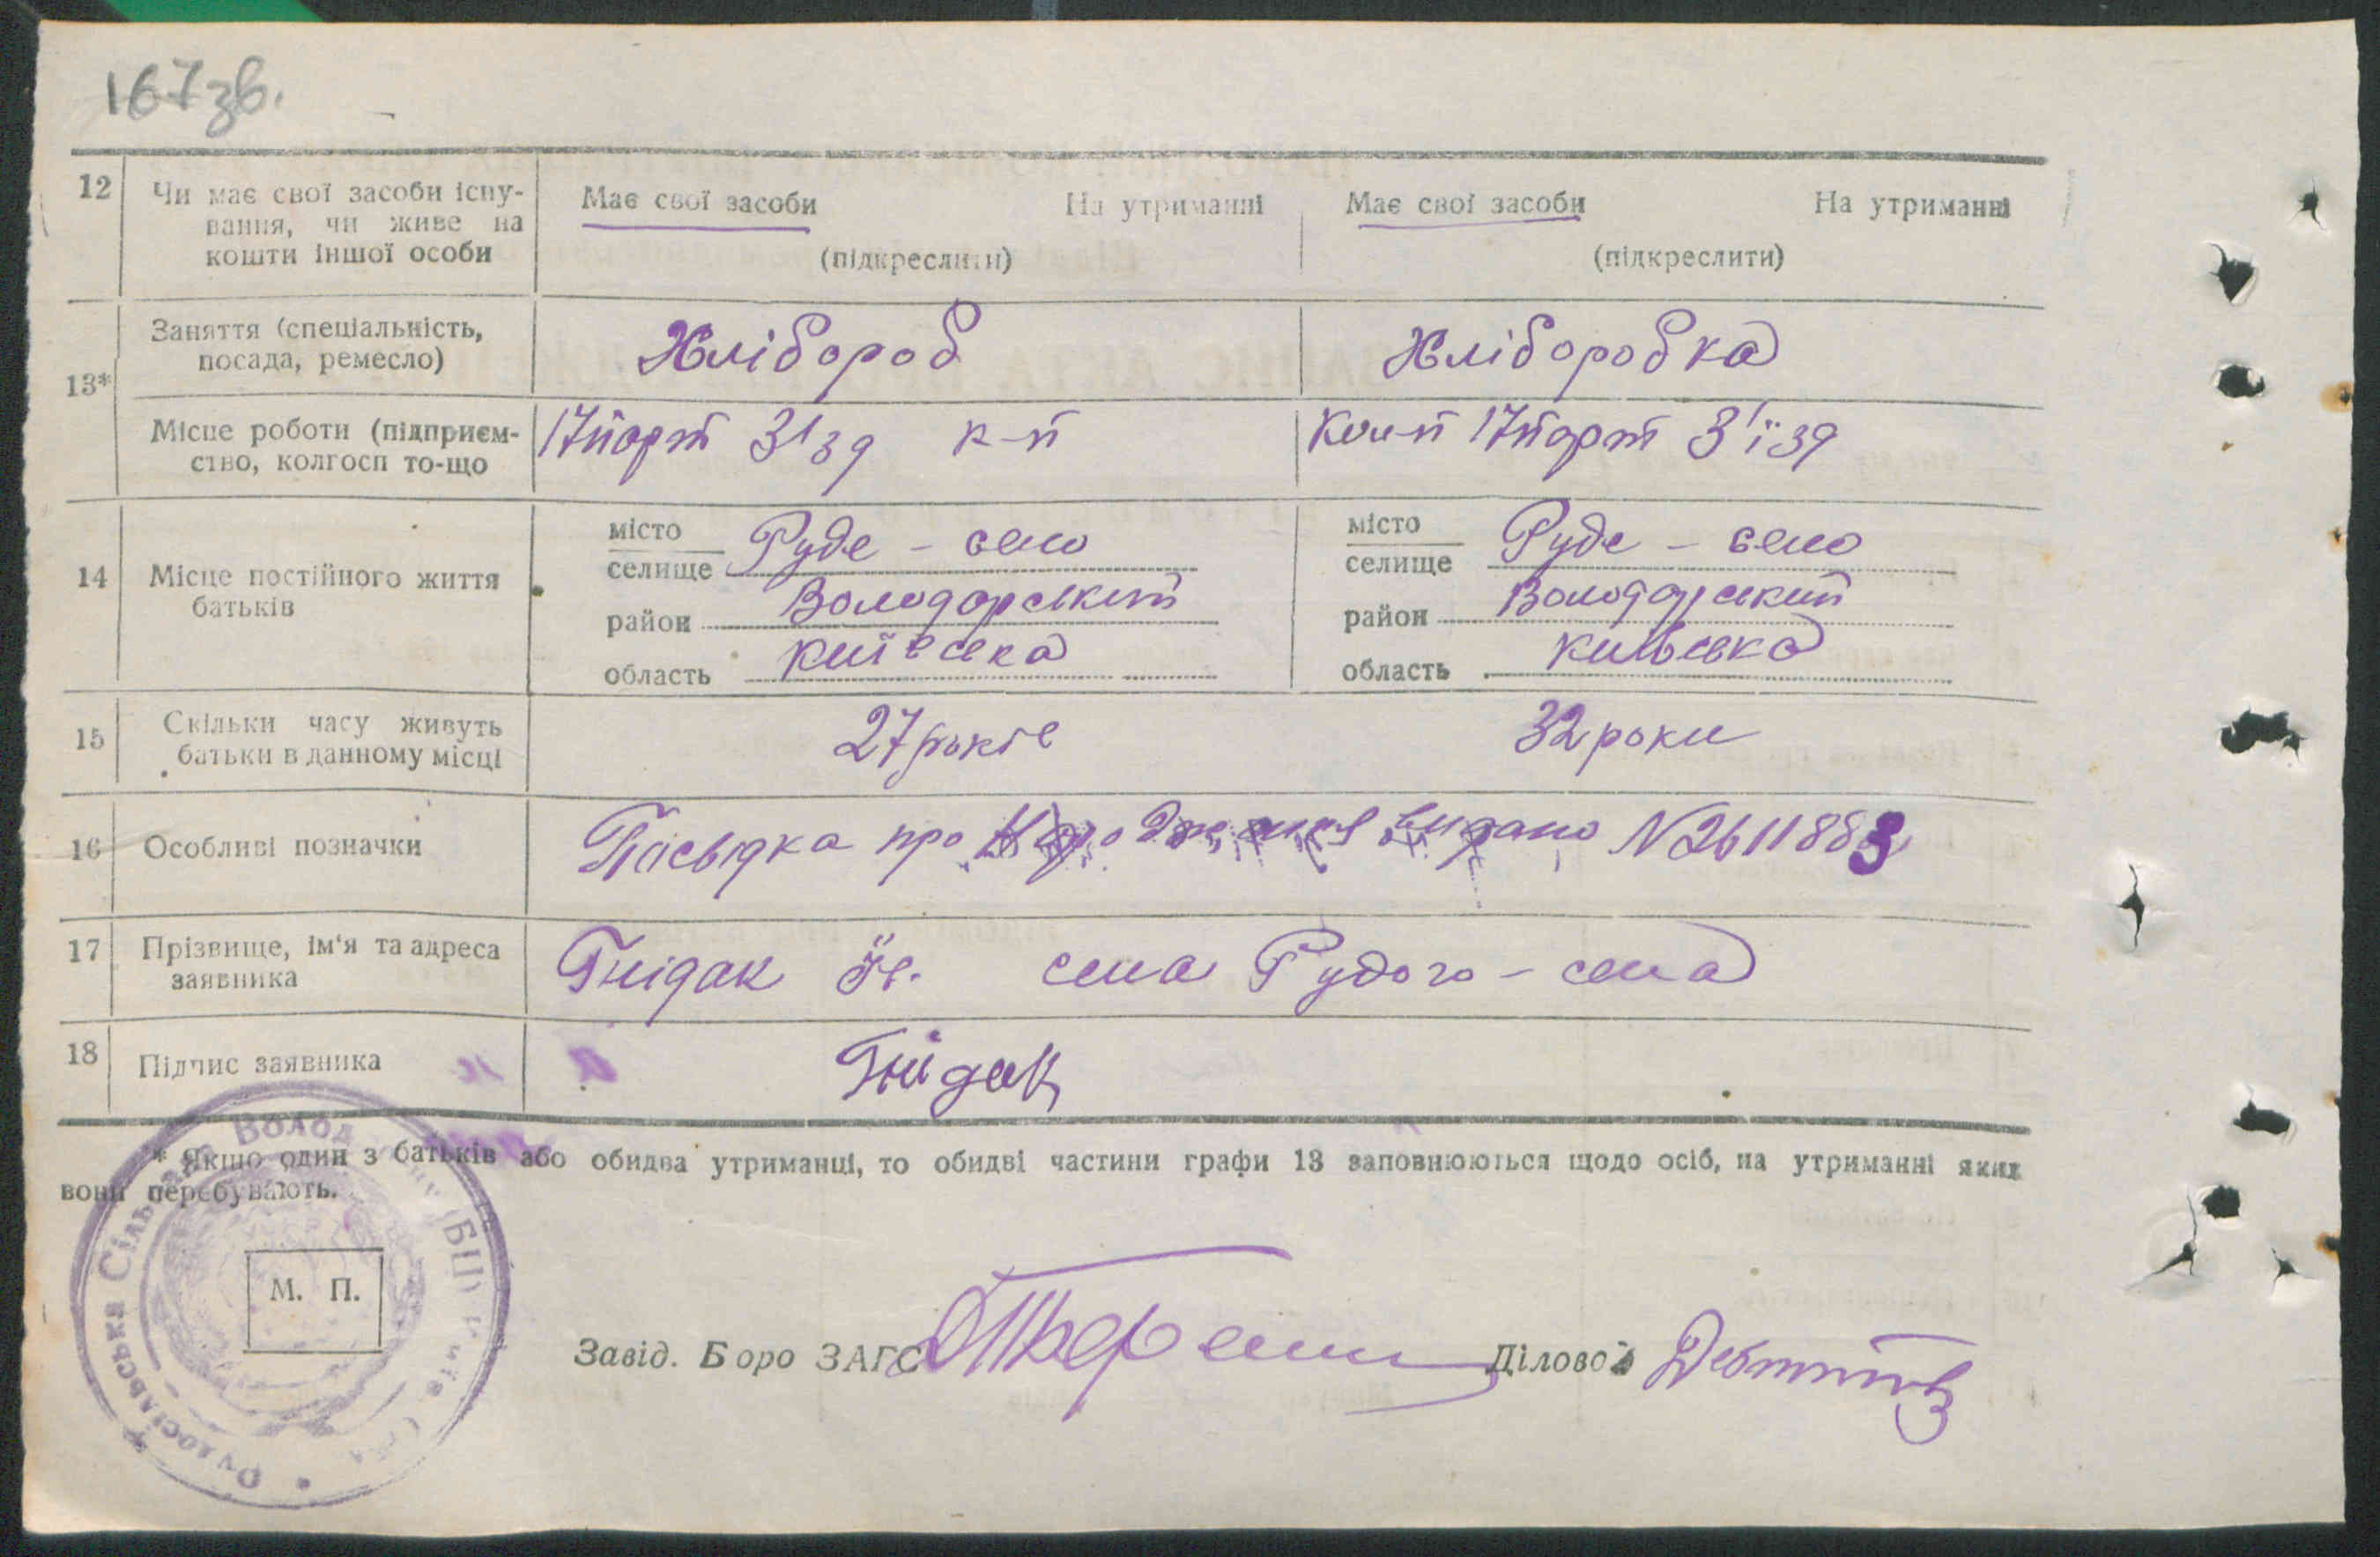 167зв.
12 Чи має свої засоби існу-
вання, чи живе на
кошти іншої особи
Має свої засоби На утриманні Має свої засоби На утриманні
(підкреслити) (підкреслити)
13*
Заняття (спеціальність,
посада, ремесло)
Хлібороб Хліборобка
Місце роботи (підприєм-
ство, колгосп то-що
17 парт з'їзд к-п Кол-п 17 парт з'їзд
14 Місце постійного життя
батьків
місто
селище Руде - село
район Володарський
область Київська
місто
селище Руде - село
район Володарський
область Київська
15 Скільки часу живуть
батьки в данному місці
27 років 32 роки
16 Особливі позначки
Посвідка про видано N 2611883
17 Прізвище, ім'я та адреса
заявника
Гнідак села Рудого - села
18 Підпис заявника
Гнідак
* Якщо один з батьків або обидва утриманці, то обидві частини графи 13 заповнюються щодо осіб, на утриманні яких
вони перебувають.
М. П.
Завід. Боро ЗАГС Діловод